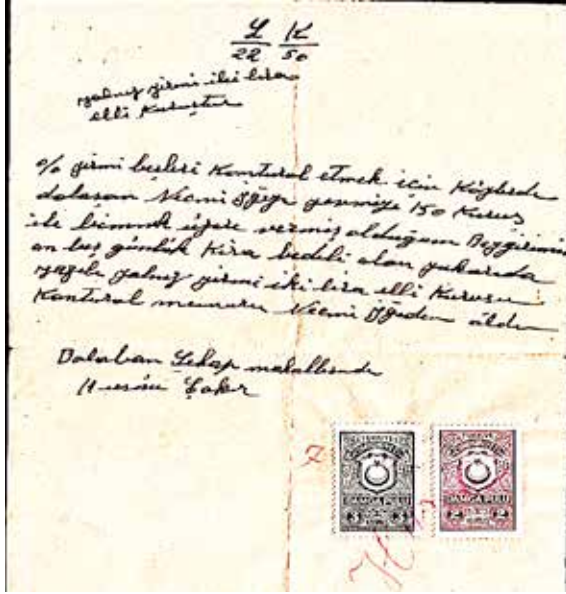 L K
22 50
yalnız yirmi iki lira
elli Kuruştur
% yirmi beşleri Kontural etmek için Köylerde
dolaşan Necmi Öğe yevmiye 150 Kuruş
ile binmek üzere vermiş olduğum Beygirimin
on beş günlük Kira bedeli olan yukarıda
yazılı yalnız yirmi iki lira elli Kuruşu
Kontural memuru Necmi Öğeden aldım
Balaban mahallesinde
Hüsnü Çakır
DAMGA PULU DAMGA PULU
3 3 2 2